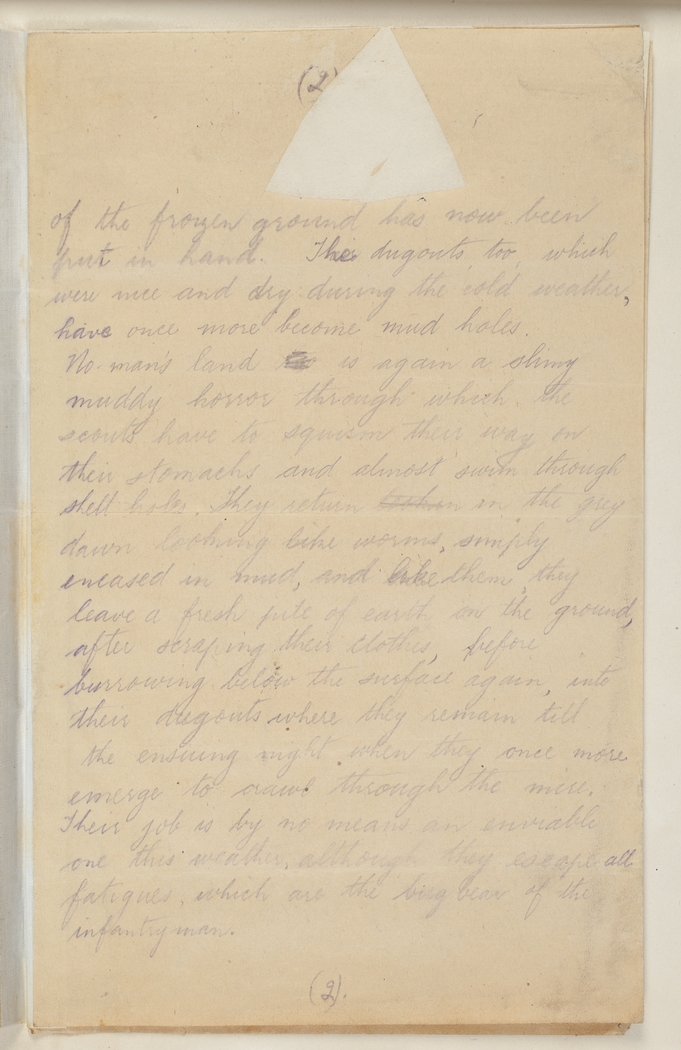 (2)
of the frozen ground has now been
put in hand. The dugouts too, which
were nice and dry during the cold weather,
have once more become mud holes.
No-man's land is again a slimy
muddy horror through which the
scouts have to squirm their way on
their stomachs and almost swim through
shell holes. They return in the grey
dawn looking like worms, simply
encased in mud, and like them, they
leave a fresh pile of earth on the ground,
after scraping their clothes, before
burrowing below the surface again, into
their dugouts where they remain till
the ensuing night when they once more
emerge to crawl through the mire.
Their job is by no means an enviable
one this weather, although they escape all
fatigues, which are the bugbear of the
infantryman.
(2).